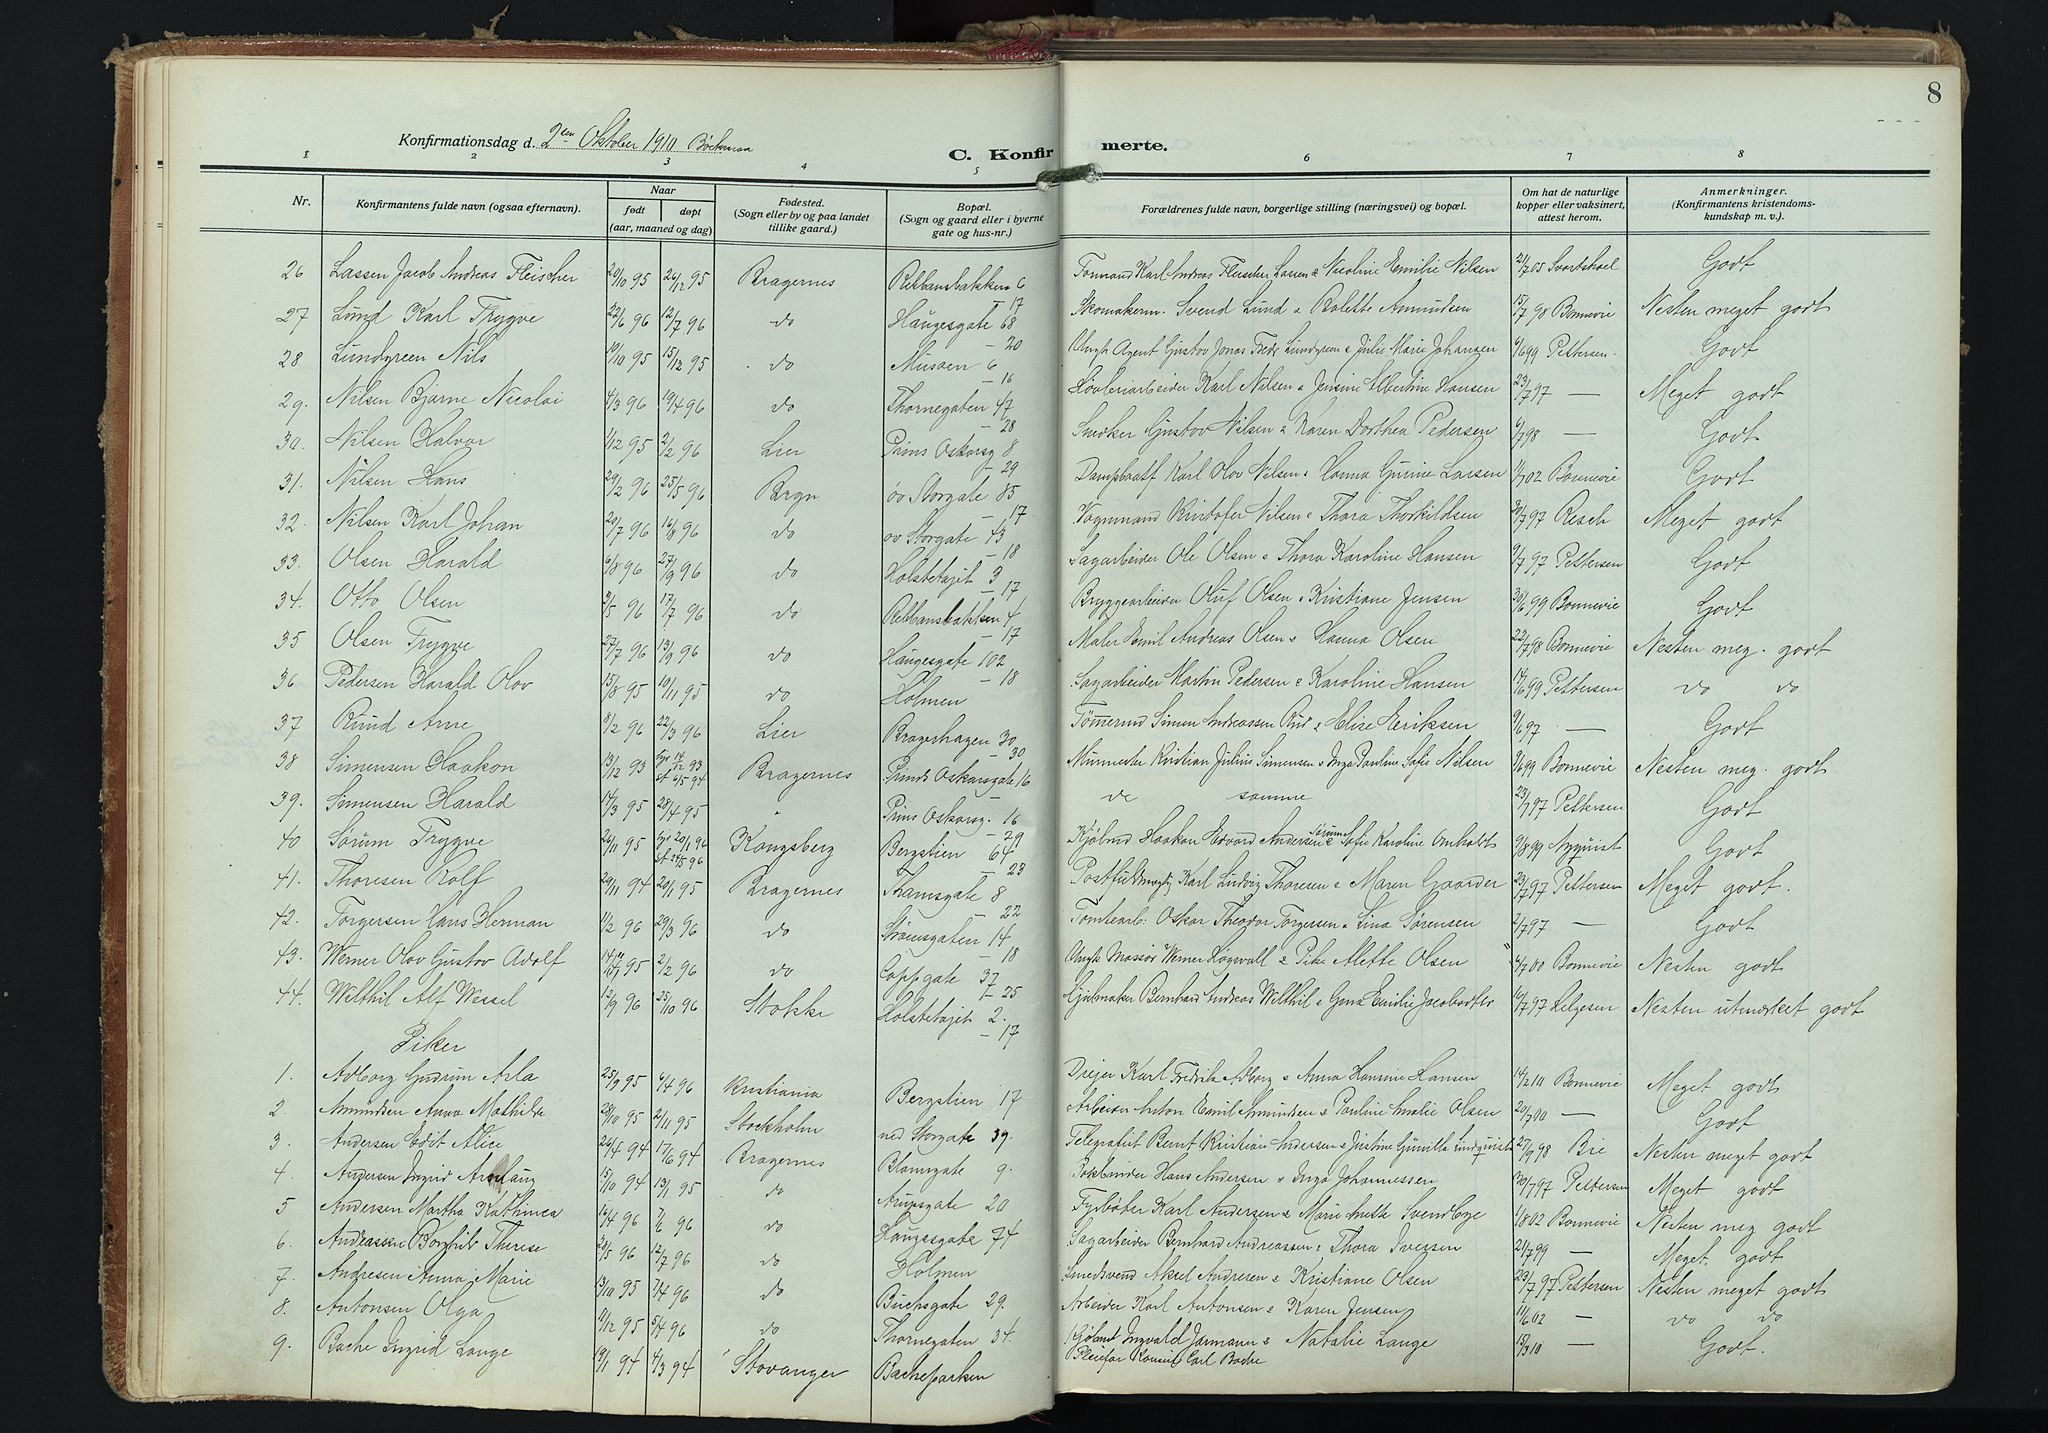 8
Konfirmationsdag d. 2den Oktober 1910
C. Konfirmerte.
1 2 3 4 5 6 7 8
Nr. Konfirmantens fulde navn (ogsaa efternavn). Naar født døpt (aar, maaned og dag) Fødested. (Sogn eller by og paa landet tillike gaard.) Bopæl. (Sogn og gaard eller i byerne gate og hus-nr.) Forældrenes fulde navn, borgerlige stilling (næringsvei) og bopæl. Om hat de naturlige kopper eller vaksinert, attest herom. Anmerkninger. (Konfirmantens kristendomskundskap m. v.).
26 Lassen Jacob Andreas Fleischer 20/10 95 26/12 95 Bragernes Rebbansbakken 6 Karl Andreas Fleischer Lassen & Nicoline Emilie Nilsen 21/7 05 Svartskoel Godt
27 Lund Karl Trygve 22/6 96 12/7 96 do – 17 Haugesgate 68 Skomakerm. Svend Lund & Bolette Amundsen 15/7 98 Bonnevie Nesten meget godt
28 Lundgreen Nils 10/10 95 15/12 95 do – 20 Musøen 6 Agent Gustov Jonas Fredr Lundgreen & Julie Marie Johansen 9/6 99 Pettersen. Godt
29. Nilsen Bjarne Nicolai 4/3 96 19/4 96 do – 16 Thornegaten 47 Høvleriarbeider Karl Nilsen & Jensine Albertine Hansen 23/7 97 — Meget godt
30. Nilsen Halvor 1/12 95 2/2 96 Lier – 28 Prins Oskarsg 8 Snedker Gustov Nilsen & Karen Dorthea Pedersen 6/7 98 — Godt
31. Nilsen Hans 29/2 96 25/5 96 Bragn – 29 øv Storgate 85 Karl Olov Nilsen & Hanna Gurine Larsen 1/7 02 Bonnevie Godt
32. Nilsen Karl Johan 20/7 96 16/8 96 do – 17 øv Storgate 43 Vognmand Kristofer Nilsen & Thora Thorkildsen 30/7 97 Resch Meget godt
33. Olsen Harald 6/8 96 27/9 96 do – 18 Holstetajet 3 Sagarbeider Ole Olsen & Thora Karoline Hansen 9/7 97 Pettersen Godt
34. Otto Olsen 2/5 96 17/7 96 do – 17 Rebbansbakken 4 Bryggearbeider Oluf Olsen & Kristiane Jensen 30/6 99 Bonnevie Godt
35 Olsen Trygve 27/7 96 13/9 96 do – 17 Haugesgate 102 Maler Emil Andreas Olsen & Hanna Olsen 22/7 98 Bonnevie Nesten meg. godt
36 Pedersen Harald Olov 15/8 95 10/11 95 do – 18 Holmen Sagarbeider Martin Pedersen & Karoline Hansen 14/6 99 Pettersen do do
37 Ruud Arne 8/2 96 22/3 96 Lier Bragerhagen 30 Simen Andreassen Rud & Elise Eriksen 9/6 97 — Godt
38 Simensen Haakon 13/12 93 14/12 93 st 6/5 94 Bragernes – 30 Prinds Oskarsgate 16 Murmester Kristian Julius Simensen & Inga Pauline Sofie Nilsen 9/6 99 Bonnevie Nesten meg. godt
39. Simensen Harald 14/3 95 28/4 95 " – Prins Oskarsg. 16 de samme 23/7 97 Pettersen Godt
40 Sørum Trygve 26/11 95 20/1 96 st 24/5 96 Kongsberg – 29 Bergstien 64 Haakon Edvard Andersen Sørum & Sofie Karoline Omholdt 9/8 99 Nyquist Godt
41. Thoresen Rolf 29/11 94 20/1 95 Bragernes – 23 Thamsgate 8 Postfuldmægtig Karl Ludvig Thoresen & Maren Gaarder 23/7 97 Pettersen Meget godt.
42. Torgersen Hans Herman 1/2 96 29/3 96 do – 22 Strømsgaten 14 Tomtearb. Oskar Theodor Torgersen & Lina Sørensen 2/7 97 — Godt
43. Werner Olov Gustov Adolf 95 2/2 96 do – 18 Coppgate 37 Massør Werner Høgvall & Pike Alette Olsen 6/7 00 Bonnevie Nesten godt
44. Wilthil Alf Wessel 12/9 96 25/10 96 Stokke – 25 Holstetajet 2. – 17 Gjubmaker Bernhard Andreas Wilthil & Gina Emilie Jacobsdtr 10/7 97 Helgesen Nesten utmerket godt
Piker
1. Adborg Gudrun Arla 25/9 95 6/4 96 Kristiania Bergstien 17 Drejer Karl Fredrik Adborg & Anna Hansine Hansen 14/2 10 Bonnevie Meget godt
2. Amundsen Anna Mathilde 28/10 95 2/11 95 Stockholm ned Storgate 39. Arbeider Anton Emil Amundsen & Pauline Amalie Olsen 20/7 00 — Godt
3. Andersen Edit Alice 26/4 94 17/6 94 Bragernes Blomsgate 9. Telegrafist Bernt Kristian Andersen & Justine Gunilla Lindquist 27/9 98 Bie Nesten meget godt
4. Andersen Ingrid Aslaug 15/10 94 13/1 95 do Arupsgate 20 Bokbinder Hans Andersen & Inga Johannessen 20/7 97 Pettersen Meget godt
5 Andersen Martha Kathinca 16/4 96 7/6 96 do Haugesgate 74 Fyrbøter Karl Andersen & Marie Mette Svendbye 1/8 02 Bonnevie Nesten meg godt
6. Andreassen Borghild Therese 29/5 96 12/7 96 do Holmen Sagarbeider Bernhard Andreassen & Thora Iversen 21/7 99 — Meget godt
7. Andresen Anna Marie 13/10 95 7/4 96 do Buchsgate 29. Smedsvend Aksel Andresen & Kristiane Olsen 23/7 97 Pettersen Nesten meget godt
8. Antonsen Olga 11/12 95 5/4 96 do Thornegaten 34. Arbeider Karl Antonsen & Karen Jensen 11/6 02 — do do
9. Bache Ingrid Lange 19/1 94 4/3 94 Stavanger Bacheparken Ingvald Jermann & Natalie Lange 18/3 10 Godt.
Pleiefar Konsul Carl Bache